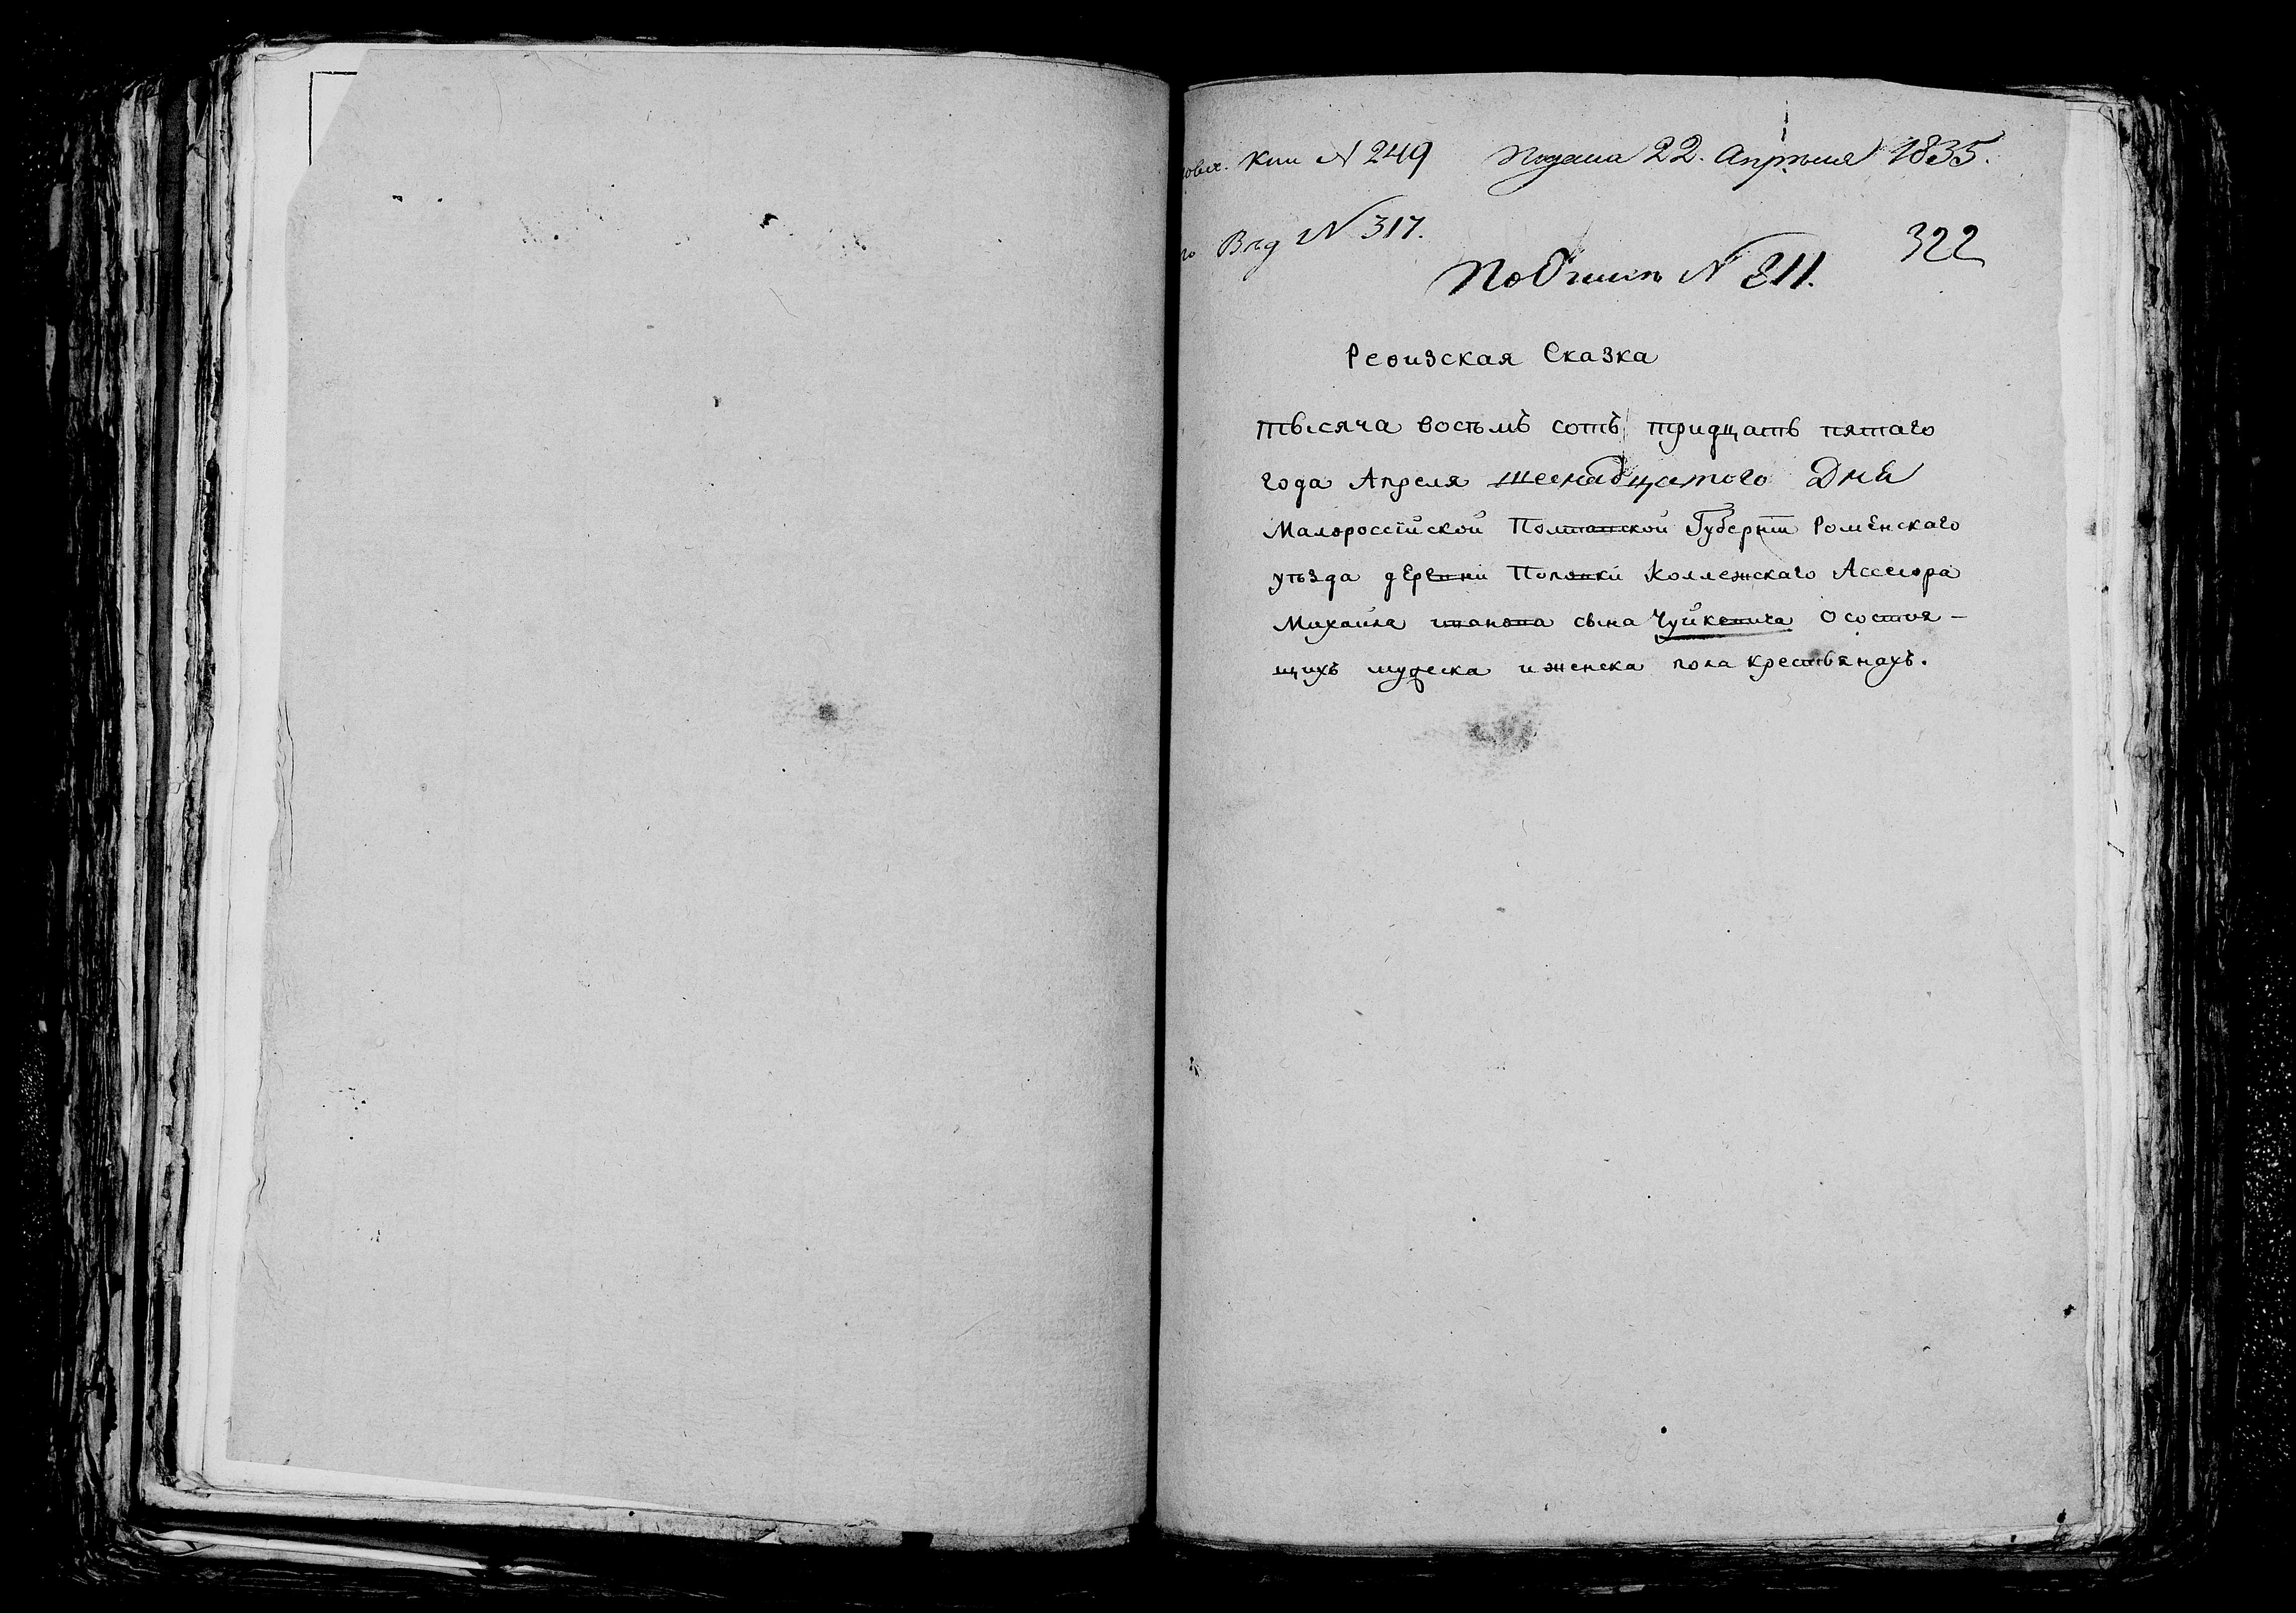 Кни N 249 Подана 22. Апрѣля 1835.
Вѣд N 317.
322
По Описи N 211.
Ревизская Сказка
тысяча восемь сотъ тридцать пятаго
года Апреля шеснадцатого Дня
Малороссійской Полтавской Губерніи Роменскаго
уѣзда деревни Поповки Коллежскаго Ассесора
Михайла иванова сына Чуйкевича О состоя-
щихъ мужеска и женска пола крестьянахъ.